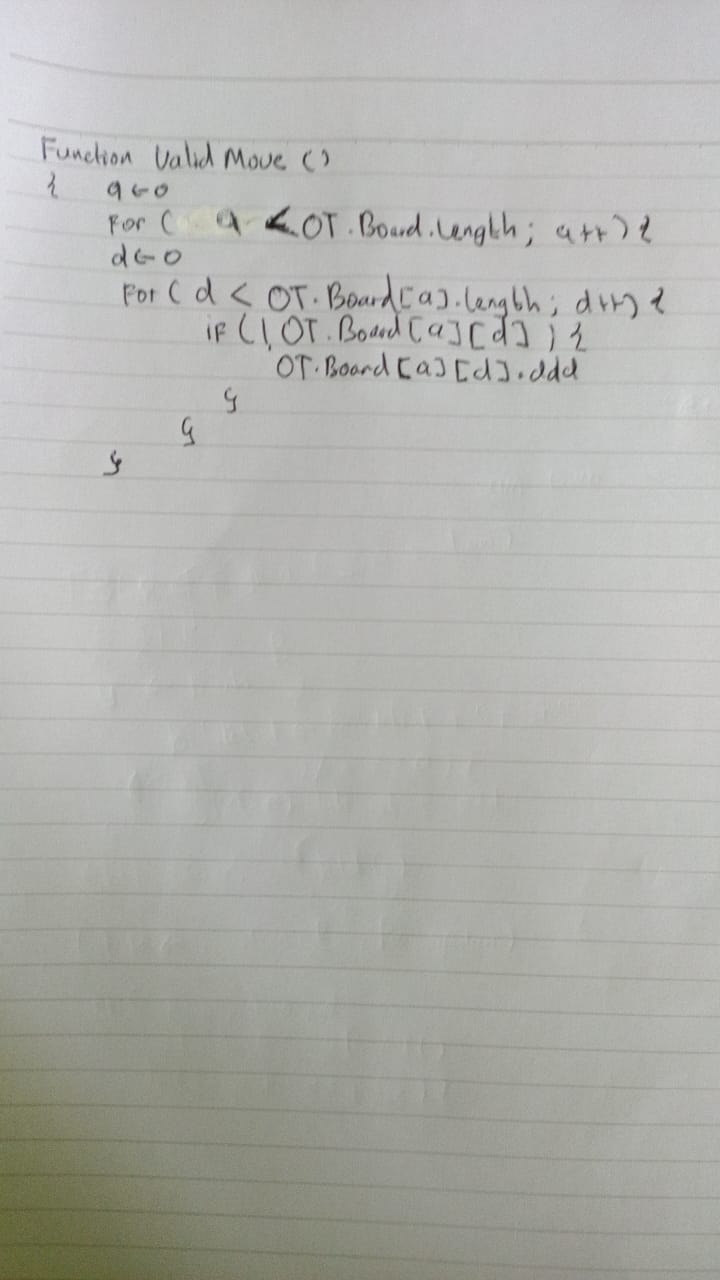 Function Valid Move ()
{ a←0
For ( a < OT.Board.Length; a++) {
d←0
For ( d < OT.Board[a].length; d++) {
if (! OT.Board[a][d] ) {
OT.Board[a][d].add
}
}
}